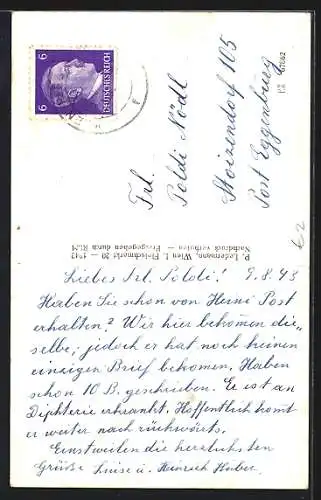 Liebes Frl. Poldi! 9.8.43
Haben Sie schon von Heini Post
erhalten? Wir hier bekommen die„
selbe; jedoch er hat noch keinen
einzigen Brief bekommen. Haben
schon 10 B. geschrieben. Er ist an
Diphterie erkrankt. Hoffentlich komt
er weiter nach rückwärts.
Einstweilen die herzlichsten
Grüße Luise u. Heinrich Huber.
P. Ledermann, Wien I, Fleischmarkt 20 — 1942
Nachdruck verboten — Freigegeben durch RLM
Frl.
Poldi Nödl
Stoizendorf 105
Post Eggenburg
6 DEUTSCHES REICH 6